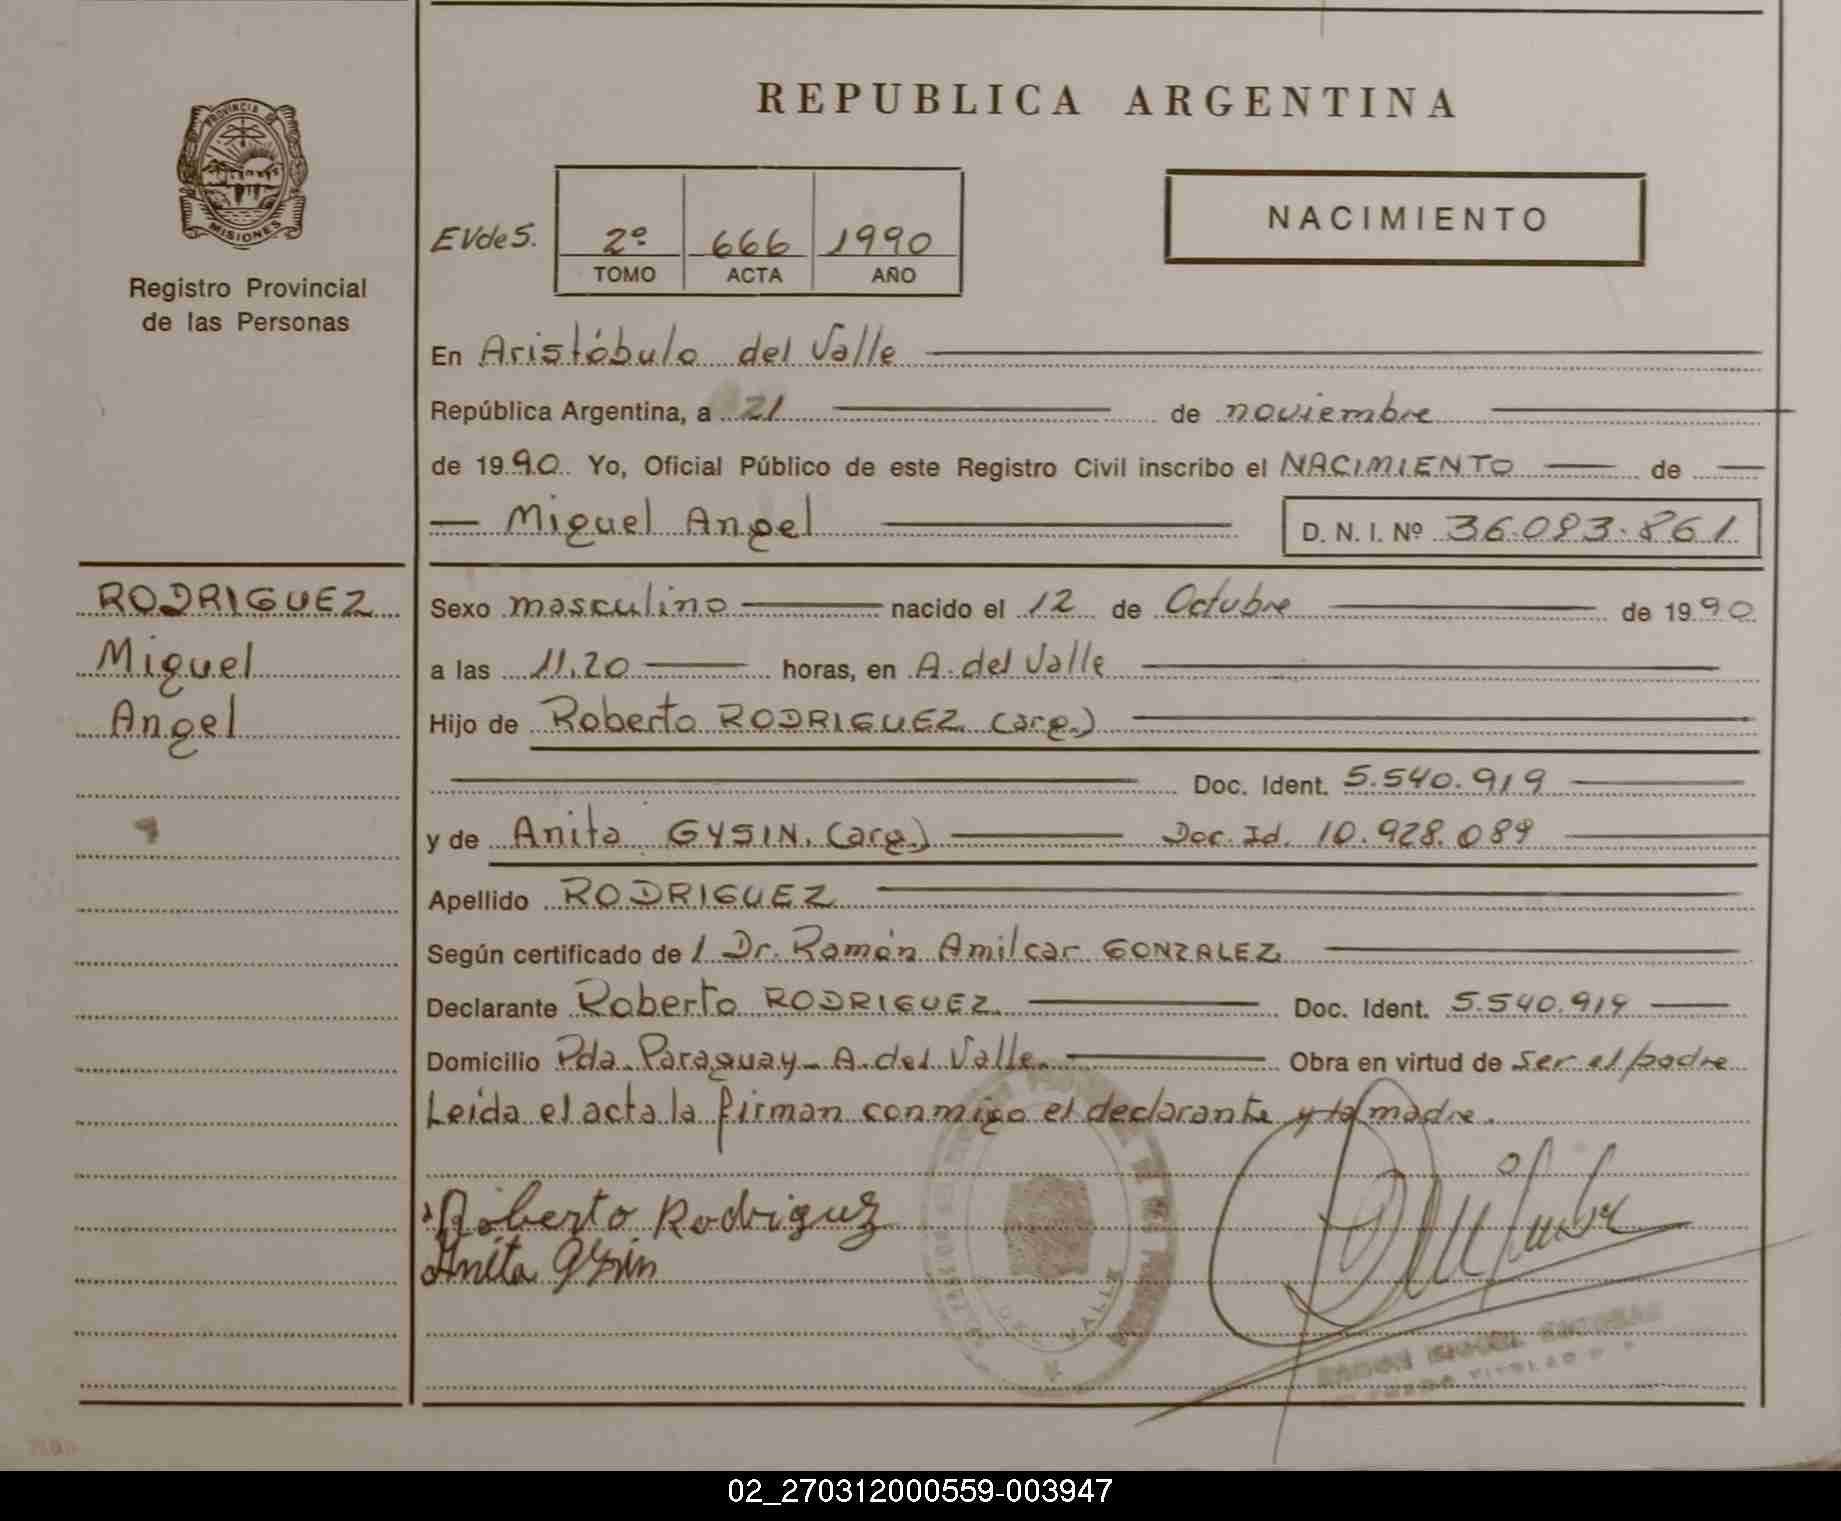 REPUBLICA ARGENTINA
PROVINCIA DE
MISIONES
Registro Provincial
de las Personas
EVdeS.
2º 666 1990
TOMO ACTA AÑO
NACIMIENTO
En Aristóbulo del Valle
República Argentina, a 21 de noviembre
de 1990. Yo, Oficial Público de este Registro Civil inscribo el NACIMIENTO de
Miguel Angel D. N. I. Nº 36.093.861
RODRIGUEZ
Miguel
Angel
Sexo masculino nacido el 12 de Octubre de 1990
a las 11.20 horas, en A. del Valle
Hijo de Roberto RODRIGUEZ (arg.)
Doc. Ident. 5.540.919
y de Anita GYSIN. (arg.) Doc. Id. 10.928.089
Apellido RODRIGUEZ
Según certificado de l Dr. Ramón Amilcar GONZALEZ
Declarante Roberto RODRIGUEZ. Doc. Ident. 5.540.919
Domicilio Pda. Paraguay - A. del Valle. Obra en virtud de Ser el padre
Leída el acta la firman conmigo el declarante y la madre.
Roberto Rodriguez
Anita Gysin
VALLE
02_270312000559-003947